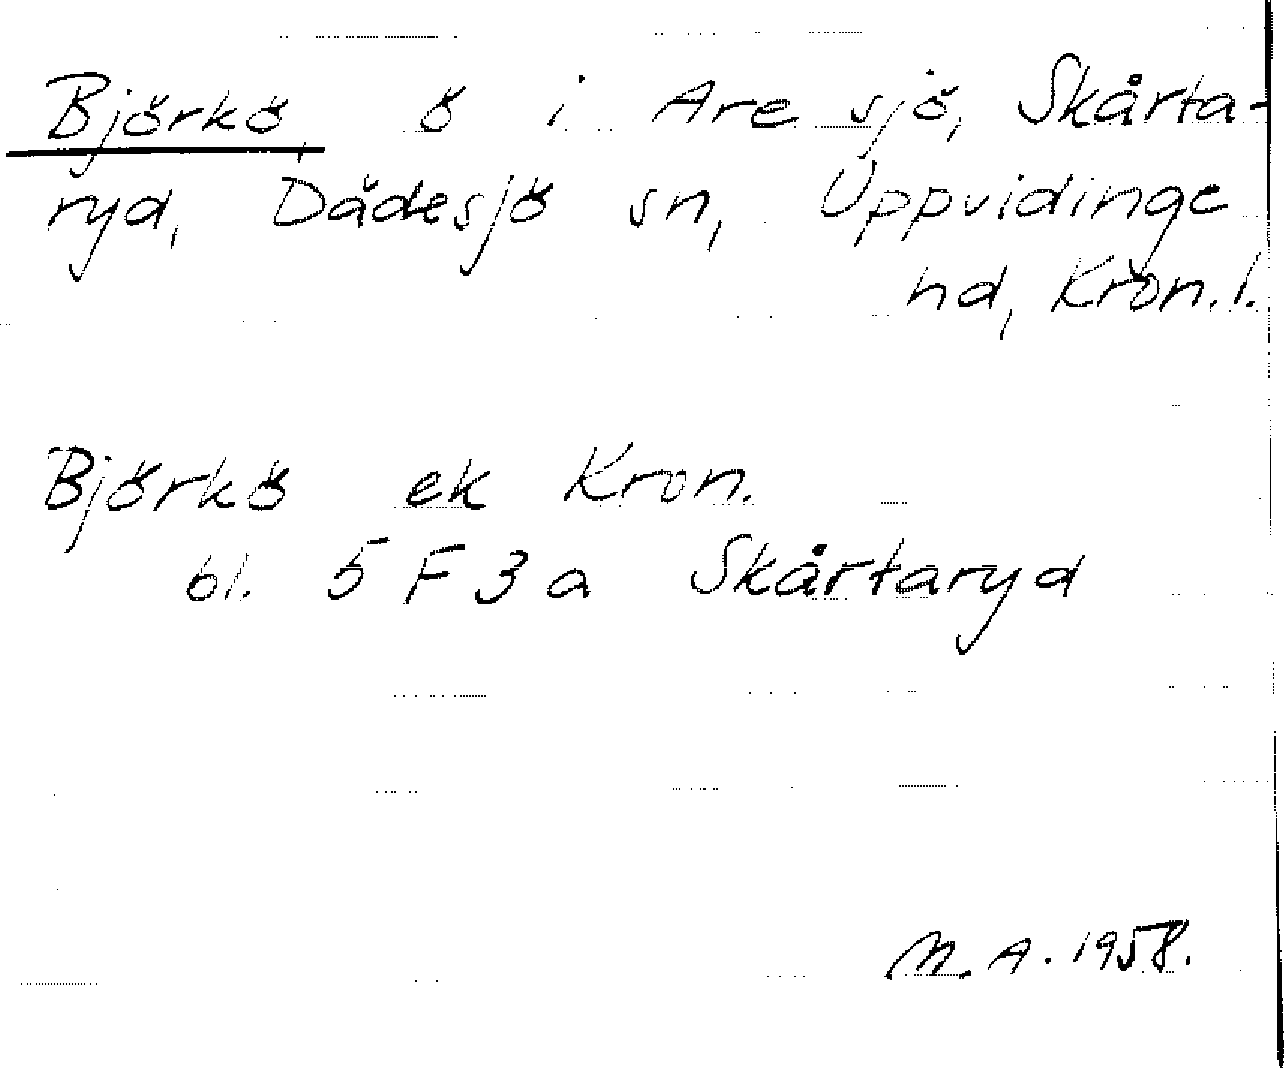 Björkö, ö i Are sjö, Skårta-
ryd, Dädesjö sn, Uppvidinge
hd, Kron. l.
Björkö ek Kron.
bl. 5 F 3 a Skårtaryd
M. A. 1958.